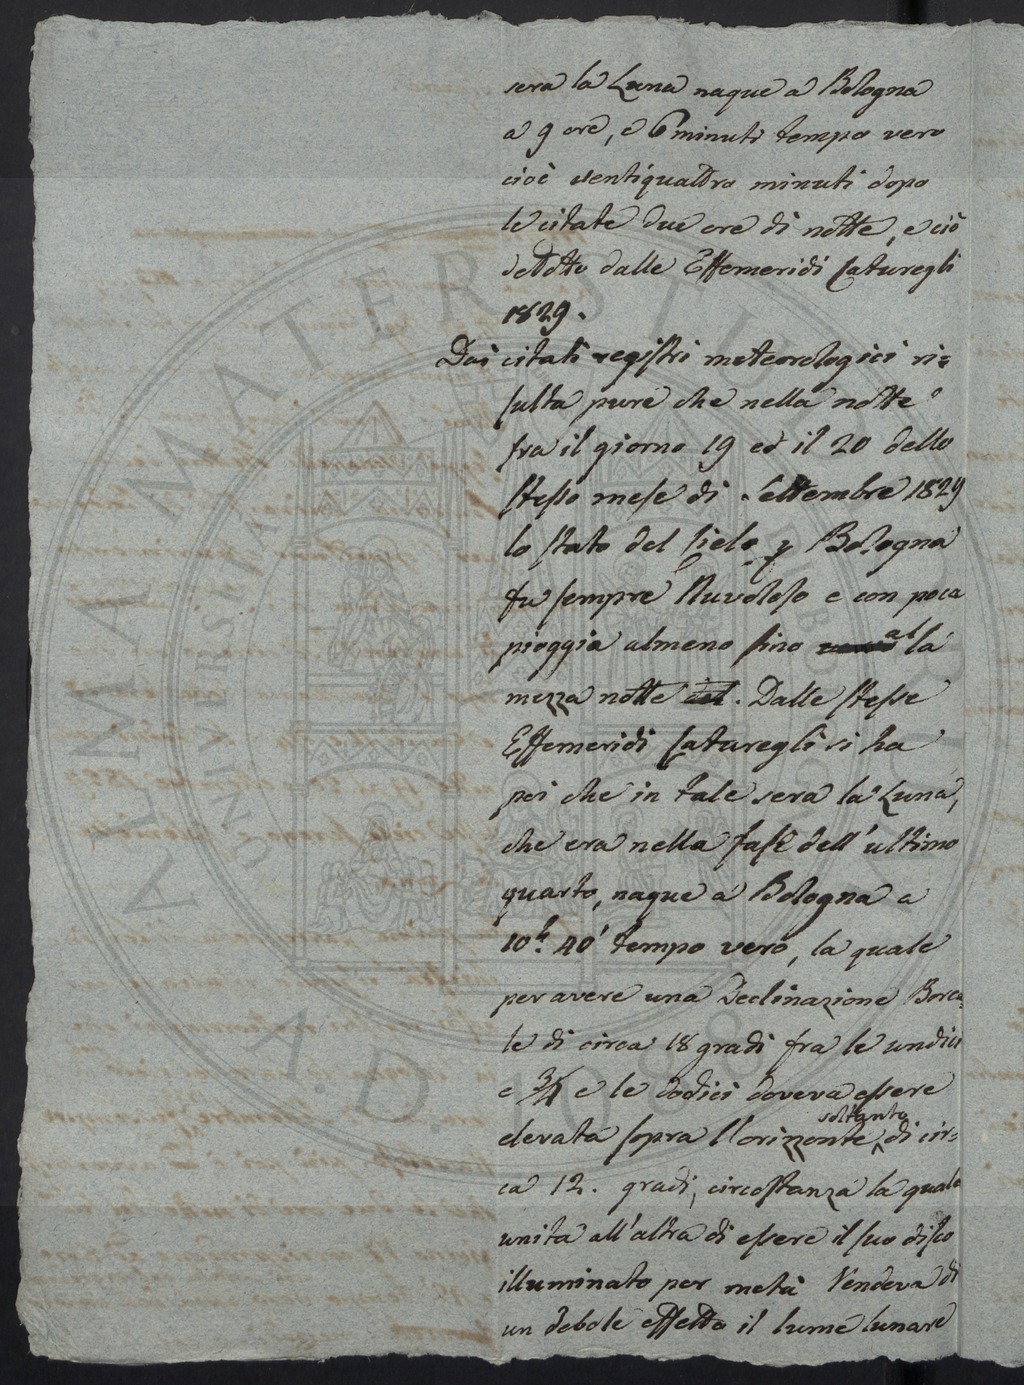 sera la Luna naque a Bologna
a 9 ore, e 6 minuti tempo vero
cioè ventiquattro minuti dopo
le citate due ore di notte, e ciò
dedotto dalle Effemeridi Caturegli
1829.
Dai citati registri meteorologici ri=
sulta pure che nella notte
fra il giorno 19 ed il 20 dello
stesso mese di Settembre 1829
lo stato del Cielo Bologna
fu sempre Nuvoloso e con poca
pioggia almeno sino alla
mezza notte. Dalle stesse
Effemeridi Caturegli si ha
poi che in tale sera la Luna,
che era nella fase dell'ultimo
quarto, naque a Bologna a
10h. 40' tempo vero, la quale
per avere una Declinazione Borea=
le di circa 18 gradi fra le undici
e 3/4 e le dodici doveva essere
elevata sopra l'orizzonte soltanto di cir=
ca 12. gradi, circostanza la quale
unita all'altra di essere il suo disco
illuminato per metà rendeva di
un debole effetto il lume lunare
ALMA MATER STUDIORUM
UNIVERSITÀ DI BOLOGNA
A.D. 1088